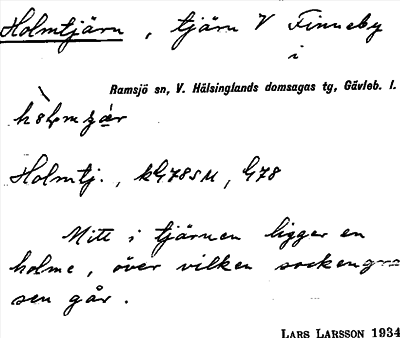 Holmtjärn, tjärn V Finneby
i
Ramsjö sn, V. Hälsinglands domsagas tg, Gävleb. l.
Holmtj., k G78SM, G78
Mitt i tjärnen ligger en
holme, över vilken sockengrän-
sen går.
LARS LARSSON 1934